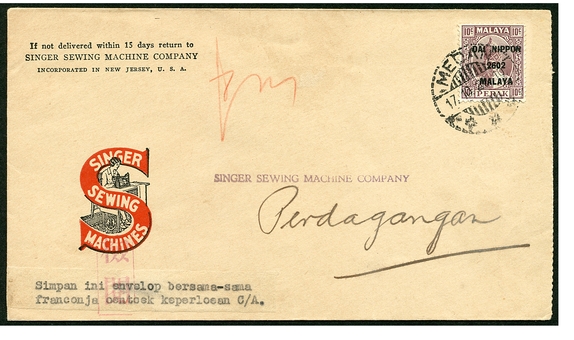 If not delivered within 15 days return to
SINGER SEWING MACHINE COMPANY
INCORPORATED IN NEW JERSEY, U. S. A.
10c MALAYA 10c
DAI NIPPON
2602
MALAYA
10c PERAK 10c
MEDAN
17
SINGER
SEWING
MACHINES
SINGER SEWING MACHINE COMPANY
Perdagangan
Simpan ini envelop bersama-sama
franconja oentoek keperloean C/A.